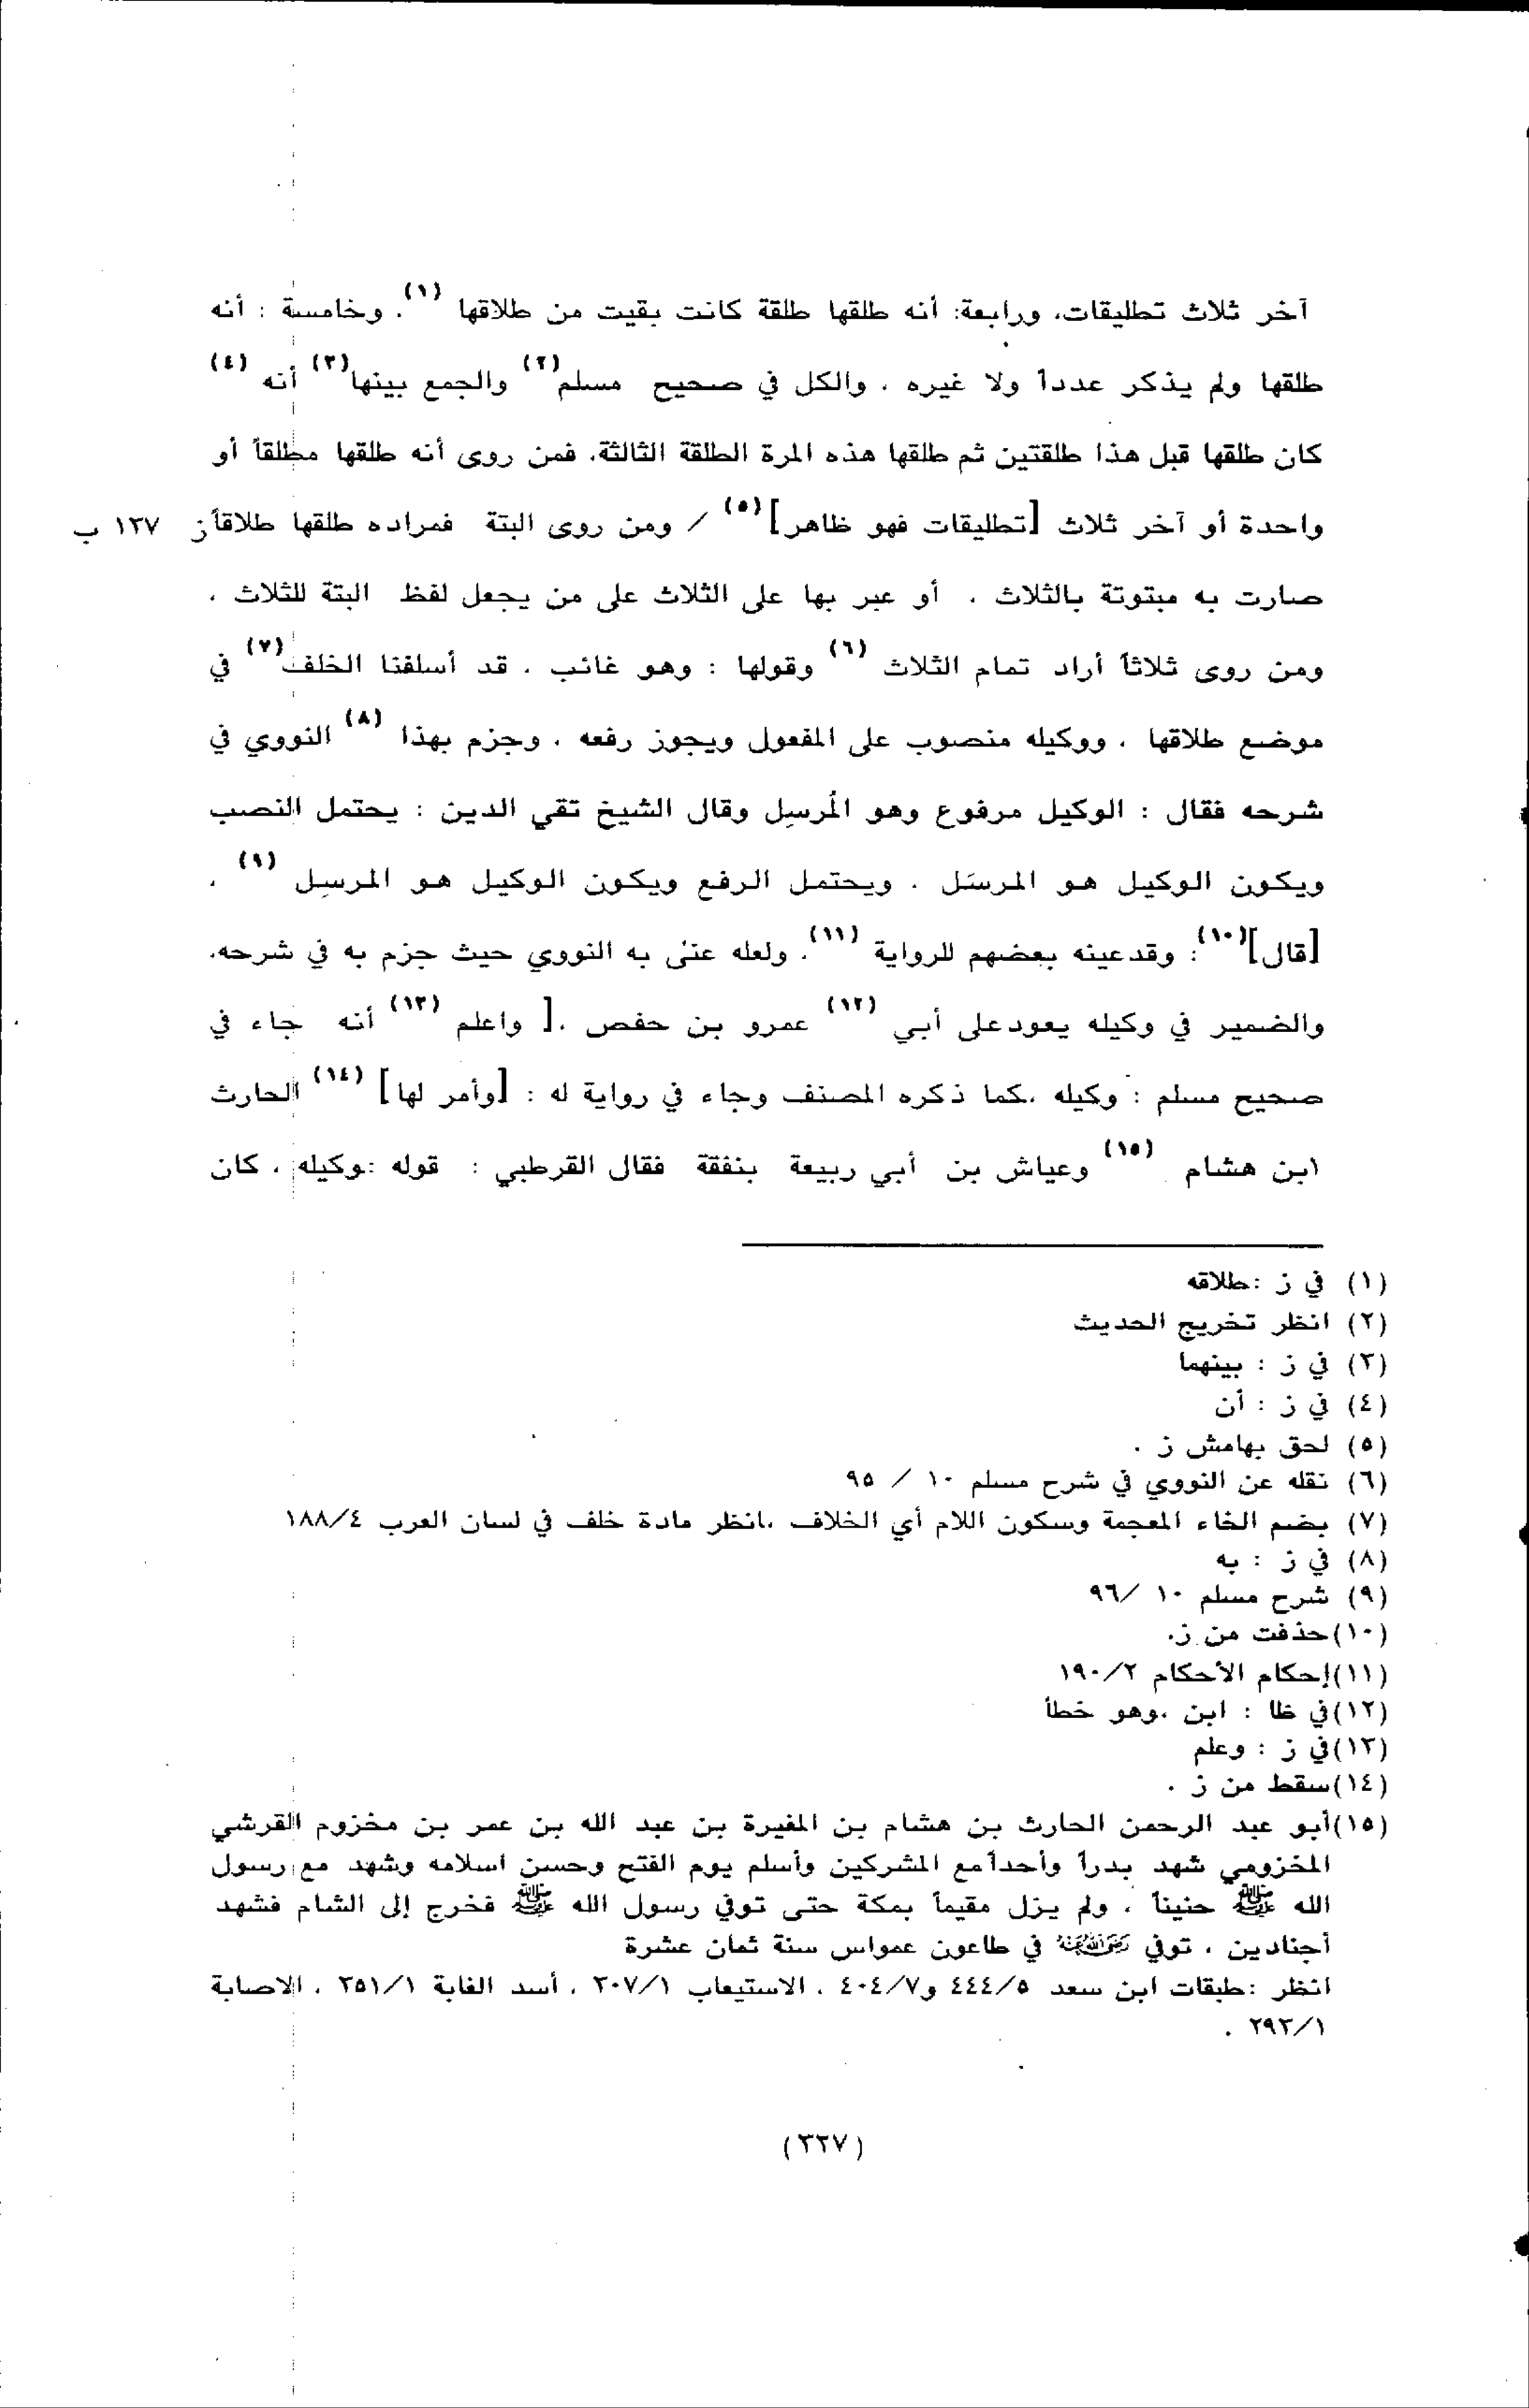 آخر ثلاث تطليقات، ورابعة: أنه طلقها طلقة كانت بقيت من طلاقها (١). وخامسة : أنه
طلقها ولم يذكر عدداً ولا غيره ، والكل في صحيح مسلم(٢) والجمع بينها(٣) أنه (٤)
كان طلقها قبل هذا طلقتين ثم طلقها هذه المرة الطلقة الثالثة، فمن روى أنه طلقها مطلقاً أو
واحدة أو آخر ثلاث [تطليقات فهو ظاهر](٥) / ومن روى البتة فمراده طلقها طلاقاً ز ١٢٧ ب
صارت به مبتوتة بالثلاث ، أو عبر بها على الثلاث على من يجعل لفظ البتة للثلاث ،
ومن روى ثلاثاً أراد تمام الثلاث (٦) وقولها : وهو غائب ، قد أسلفنا الخلف(٧) في
موضع طلاقها ، ووكيله منصوب على المفعول ويجوز رفعه ، وجزم بهذا (٨) النووي في
شرحه فقال : الوكيل مرفوع وهو المُرسِل وقال الشيخ تقي الدين : يحتمل النصب
ويكون الوكيل هو المرسَل ، ويحتمل الرفع ويكون الوكيل هو المرسِل (٩) ،
[قال](١٠): وقدعينه بعضهم للرواية (١١)، ولعله عنى به النووي حيث جزم به في شرحه،
والضمير في وكيله يعودعلى أبي (١٢) عمرو بن حفص ،[ واعلم (١٣) أنه جاء في
صحيح مسلم : وكيله ،كما ذكره المصنف وجاء في رواية له : [وأمر لها] (١٤) الحارث
ابن هشام (١٥) وعياش بن أبي ربيعة بنفقة فقال القرطبي : قوله :وكيله ، كان
(١) في ز :طلاقه
(٢) انظر تخريج الحديث
(٣) في ز : بينهما
(٤) في ز : أن
(٥) لحق بهامش ز .
(٦) نقله عن النووي في شرح مسلم ١٠ / ٩٥
(٧) بضم الخاء المعجمة وسكون اللام أي الخلاف ،انظر مادة خلف في لسان العرب ١٨٨/٤
(٨) في ز : به
(٩) شرح مسلم ١٠ /٩٦
(١٠)حذفت من ز.
(١١)إحكام الأحكام ١٩٠/٢
(١٢)في ظا : ابن ،وهو خطأ
(١٣)في ز : وعلم
(١٤)سقط من ز .
(١٥)أبو عبد الرحمن الحارث بن هشام بن المغيرة بن عبد الله بن عمر بن مخزوم القرشي
المخزومي شهد بدراً وأحداًمع المشركين وأسلم يوم الفتح وحسن اسلامه وشهد مع رسول
الله ﷺ حنيناً ، ولم يزل مقيماً بمكة حتى توفي رسول الله ﷺ فخرج إلى الشام فشهد
أجنادين ، توفي رضي الله عنه في طاعون عمواس سنة ثمان عشرة
انظر :طبقات ابن سعد ٤٤٤/٥ و٤٠٤/٧ ، الاستيعاب ٣٠٧/١ ، أسد الغابة ٣٥١/١ ، الاصابة
٢٩٣/١ .
(٣٢٧)